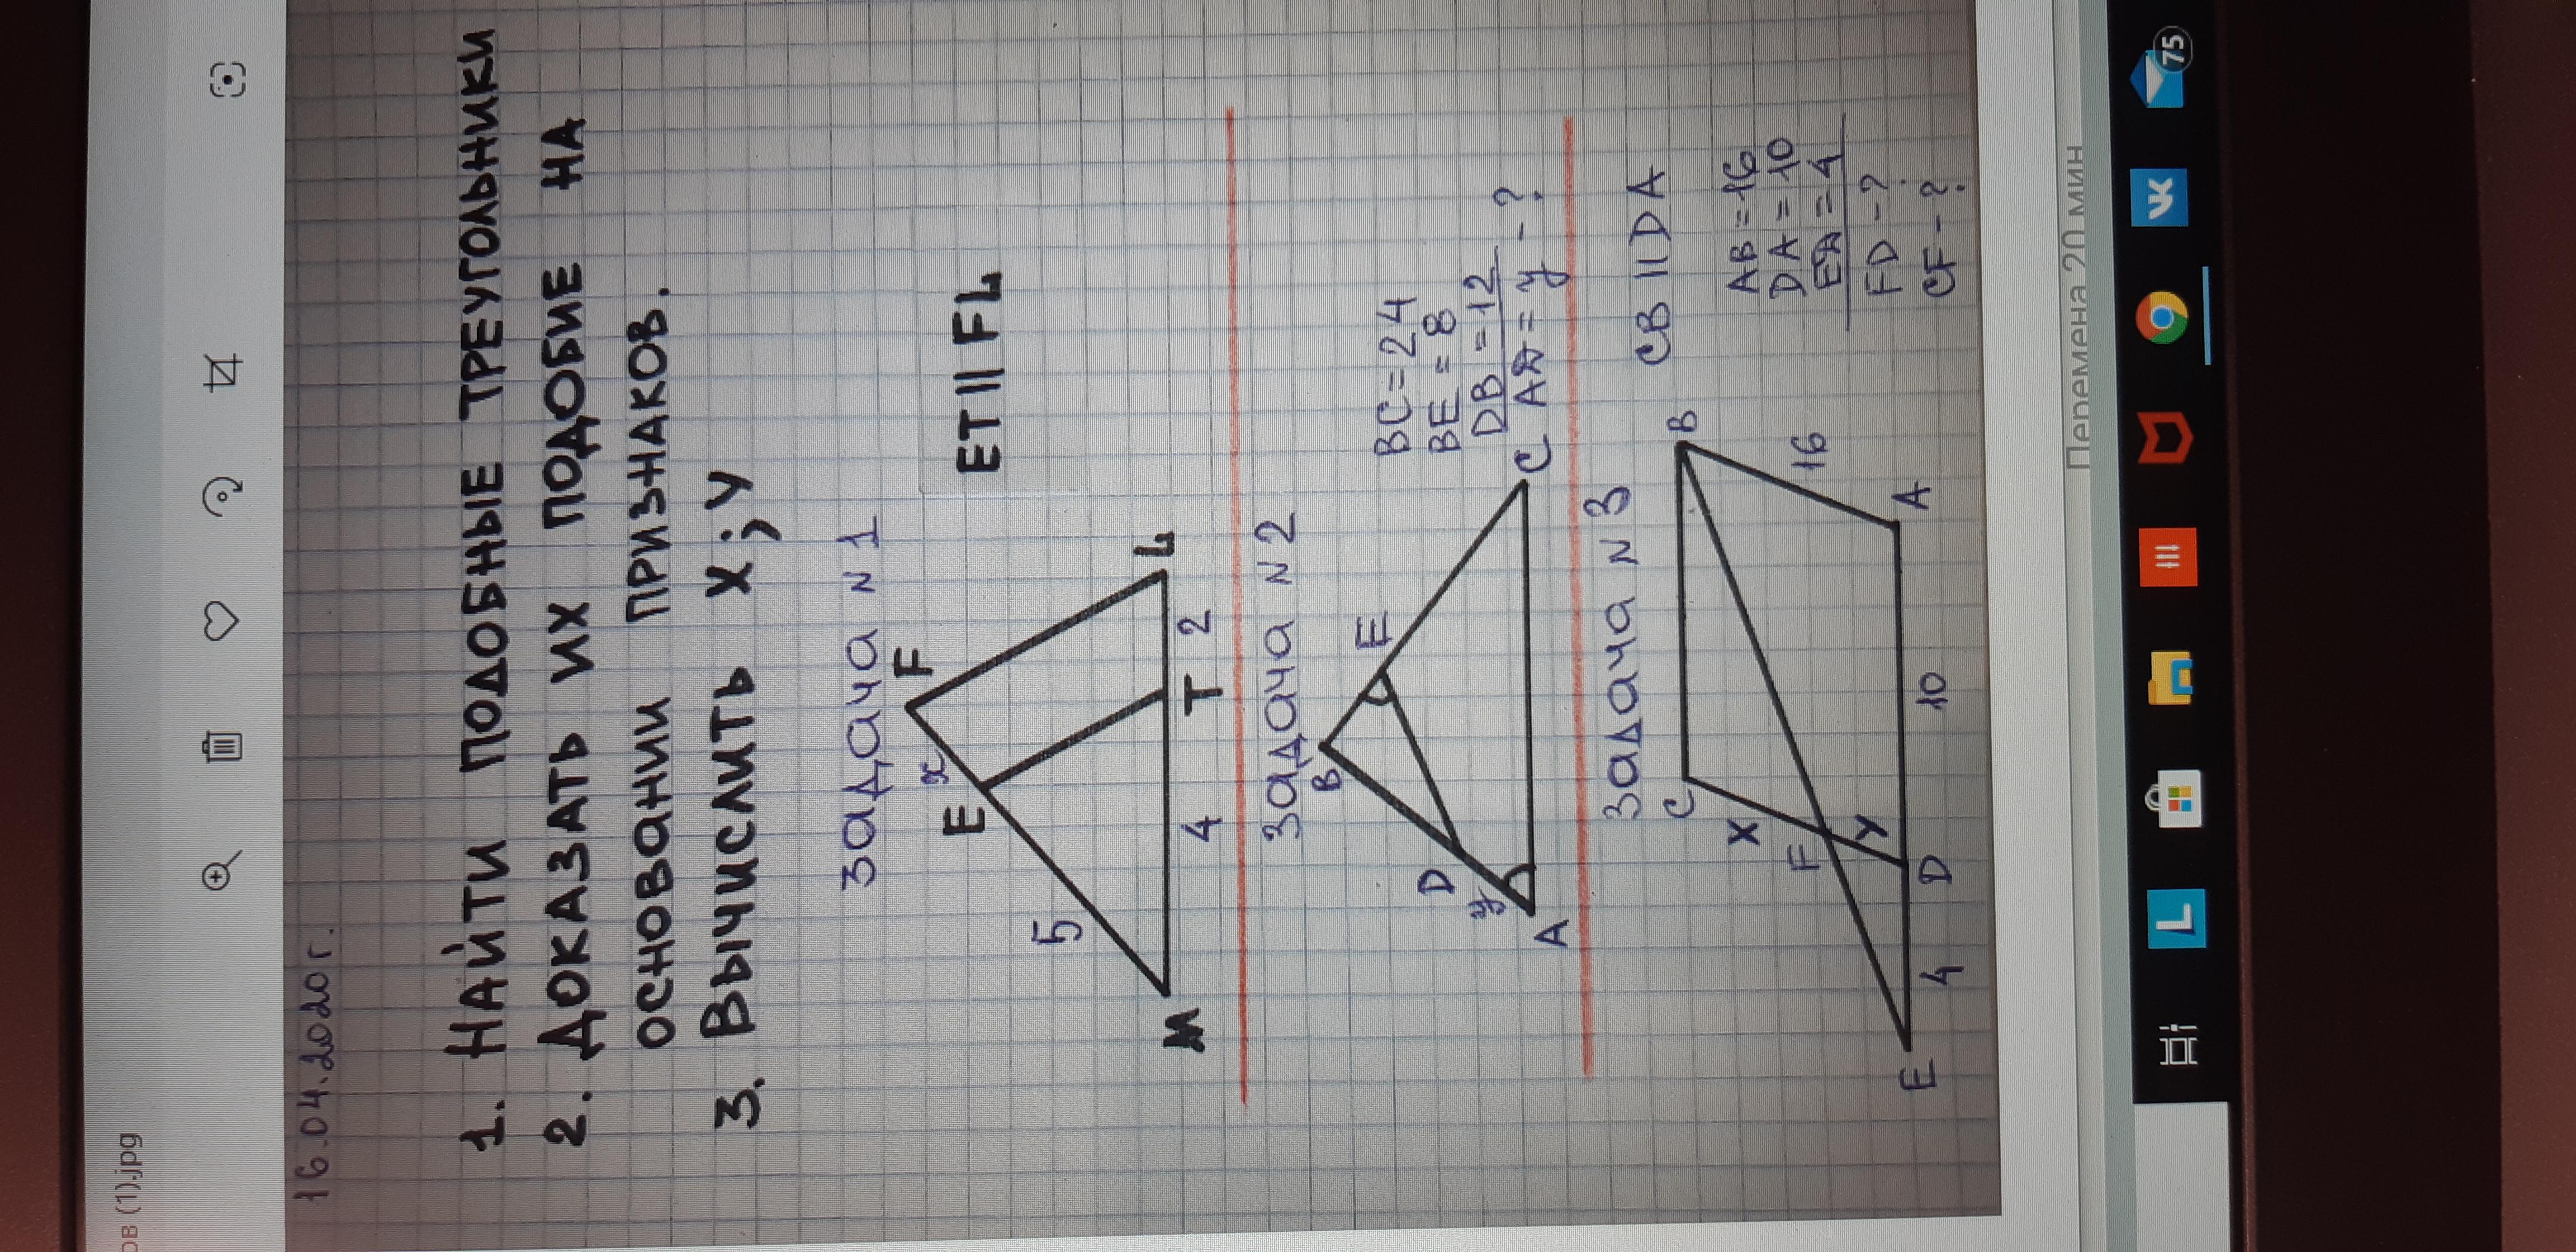 ов (1).jpg
16.04.2020г.
1. НАЙТИ ПОДОБНЫЕ ТРЕУГОЛЬНИКИ
2. ДОКАЗАТЬ ИХ ПОДОБИЕ НА
ОСНОВАНИИ ПРИЗНАКОВ.
3. ВЫЧИСЛИТЬ X; У
задача N 1
F
x
E
5
ET || FL
M
4
T
2
L
задача N 2
B
E
D
y
A
C
BC=24
BE=8
DB=12
AD=y-?
задача N 3
CB || DA
C
B
X
F
У
16
E
4
D
10
A
AB=16
DA=10
ED=4
FD-?
CF-?
Перемена 20 мин
L
75